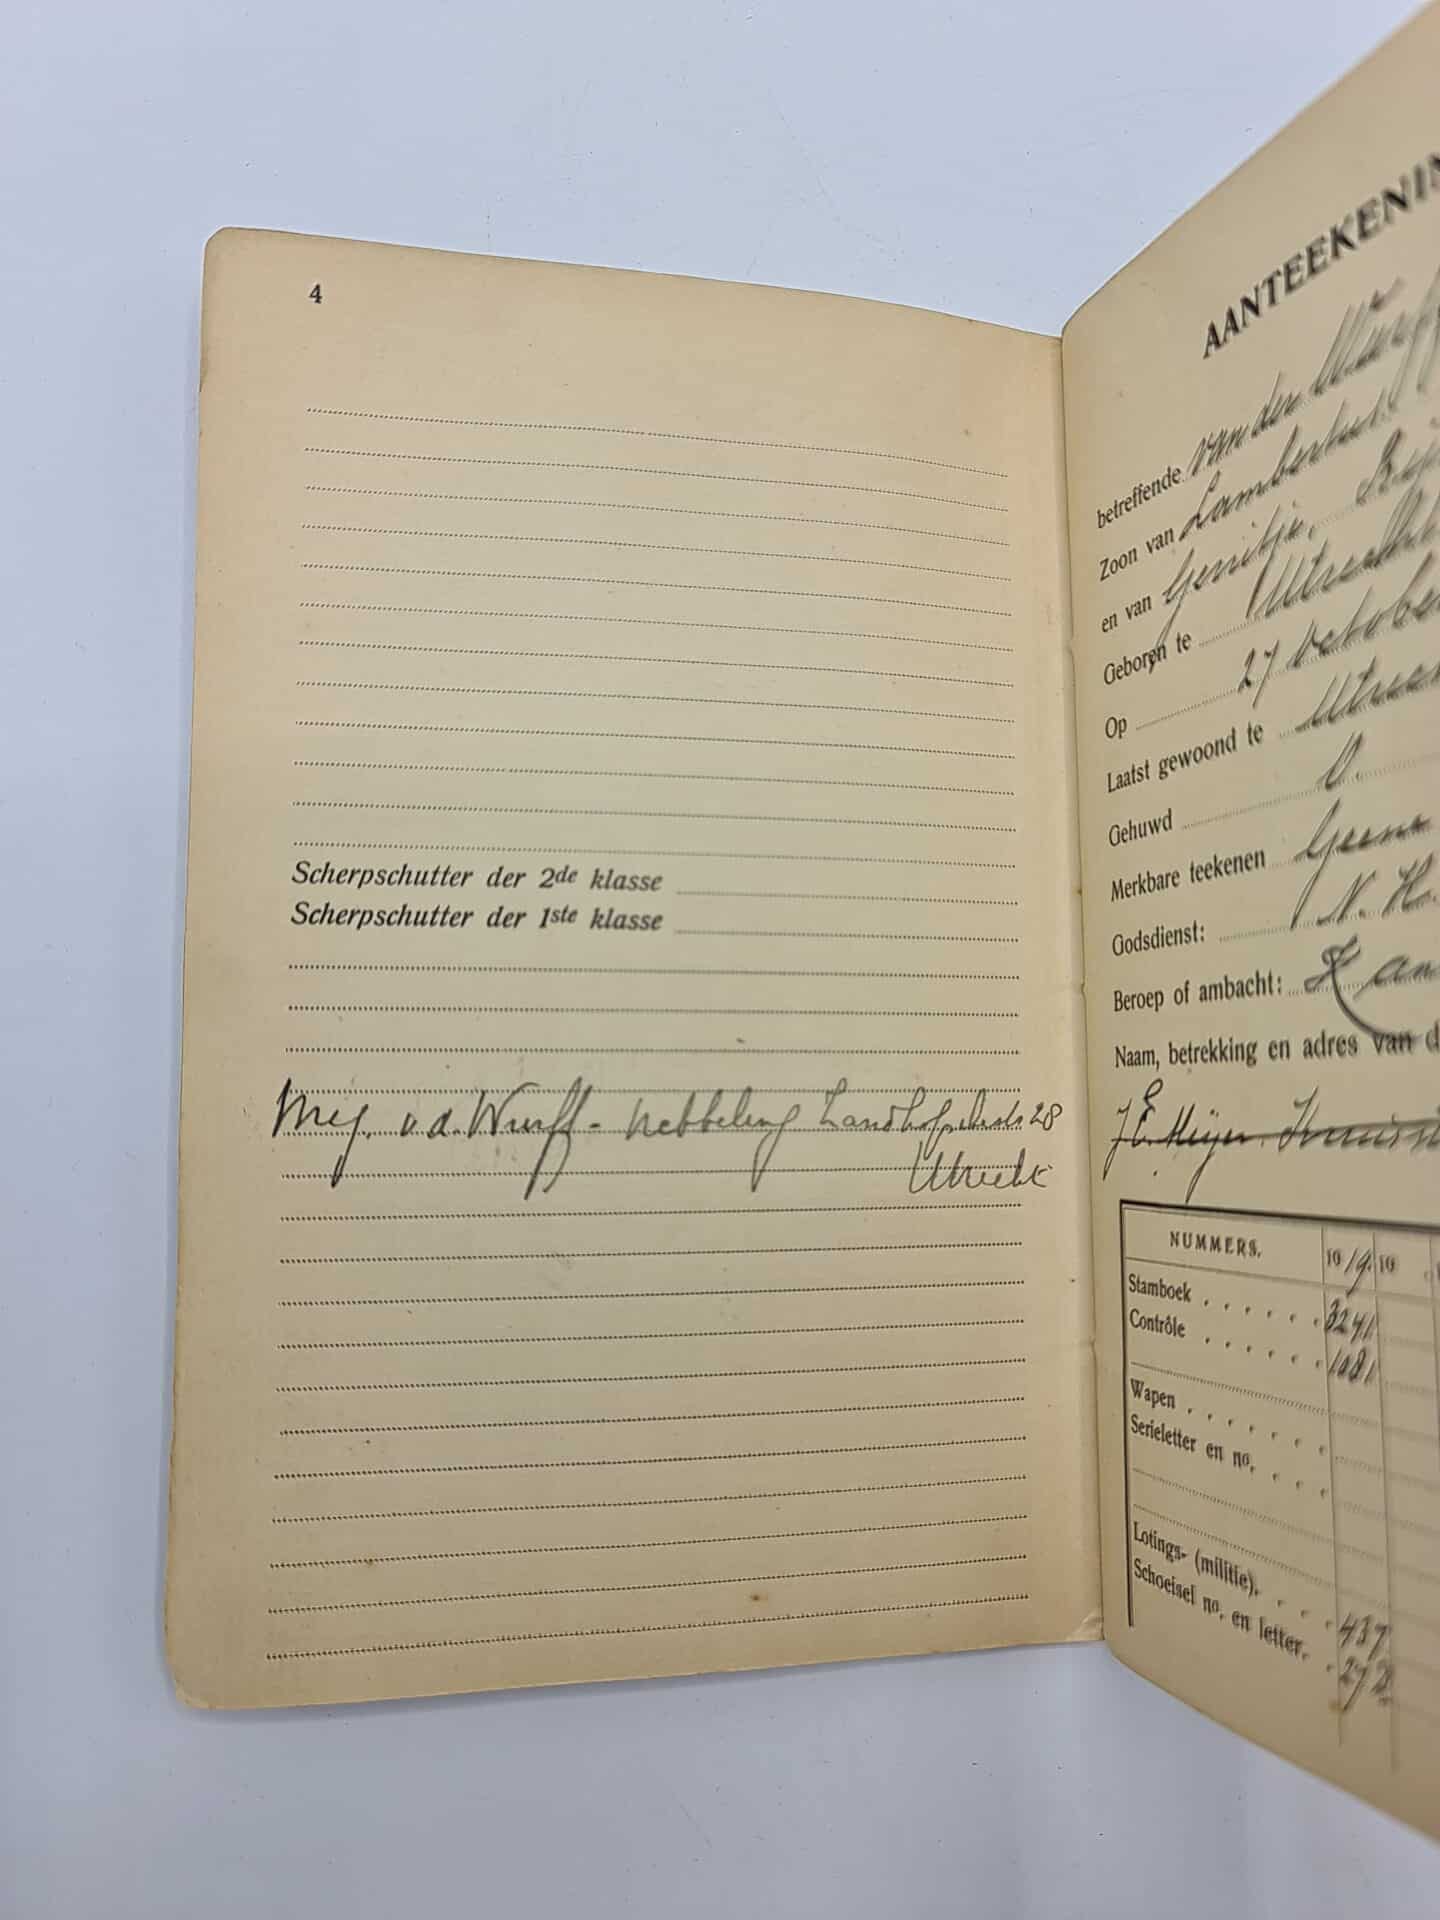 4
Scherpschutter der 2de klasse
Scherpschutter der 1ste klasse
Mej. v.d. Wurff - Nebbeling 28
Utrecht
AANTEEKENIN
betreffende van der Wurff
Zoon van Lambertus.
en van Gerritje,
Geboren te Utrecht
Op 27 October
Laatst gewoond te Utrec
Gehuwd O.
Merkbare teekenen Geene
Godsdienst: N. H.
Beroep of ambacht: Kan
Naam, betrekking en adres van d
J E. Meijer.
NUMMERS. 19 19. 19
Stamboek 3241
Contrôle 1081
Wapen
Serieletter en no.
Lotings- (militie). 437
Schoeisel no. en letter. 272